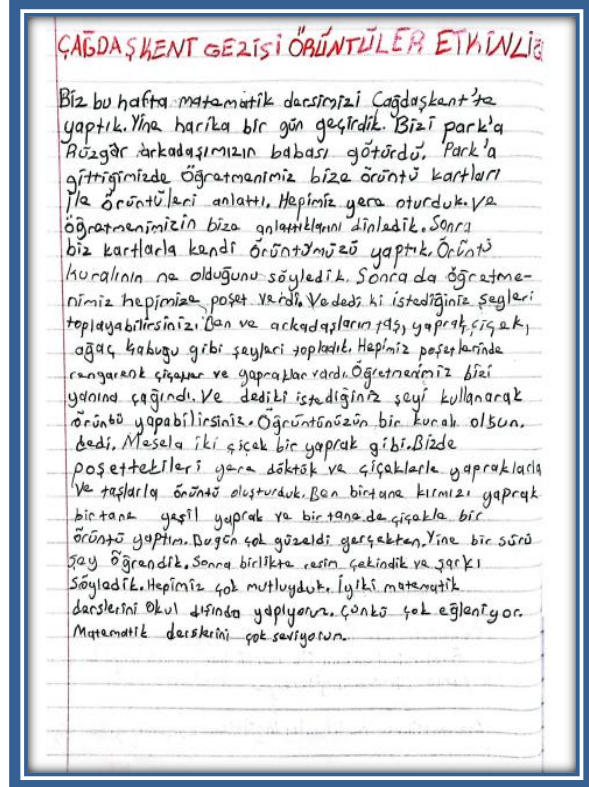 ÇAĞDAŞKENT GEZİSİ ÖRÜNTÜLER ETKİNLİĞ
Biz bu hafta matematik dersimizi Çağdaşkent'te
yaptık. Yine harika bir gün geçirdik. Bizi park'a
Rüzgâr arkadaşımızın babası götürdü. Park'a
gittiğimizde Öğretmenimiz bize örüntü kartları
ile örüntüleri anlattı. Hepimiz yere oturduk. Ve
öğretmenimizin bize anlattıklarını dinledik. Sonra
biz kartlarla kendi örüntümüzü yaptık. Örüntü
kuralının ne olduğunu söyledik. Sonra da öğretme-
nimiz hepimize poşet verdi. Ve dedi ki istediğiniz şeyleri
toplayabilirsiniz. Ben ve arkadaşlarım taş, yaprak, çiçek,
ağaç kabuğu gibi şeyleri topladık. Hepimiz poşetlerinde
rengarenk çiçekler ve yapraklar vardı. Öğretmenimiz bizi
yanına çağırdı. Ve dediki istediğiniz şeyi kullanarak
örüntü yapabilirsiniz. Öğrüntünüzün bir kuralı olsun.
dedi. Mesela iki çiçek bir yaprak gibi. Bizde
poşettekileri yere döktük ve çiçeklerle yapraklarla
ve taşlarla örüntü oluşturduk. Ben birtane kırmızı yaprak
birtane yeşil yaprak ve bir tane de çiçekle bir
örüntü yaptım. Bugün çok güzeldi gerçekten. Yine bir sürü
şey öğrendik. Sonra birlikte resim çekindik ve şarkı
söyledik. Hepimiz çok mutluyduk. İyiki matematik
derslerini Okul dışında yapıyoruz. Çünkü çok eğleniyor.
Matematik derslerini çok seviyorum.